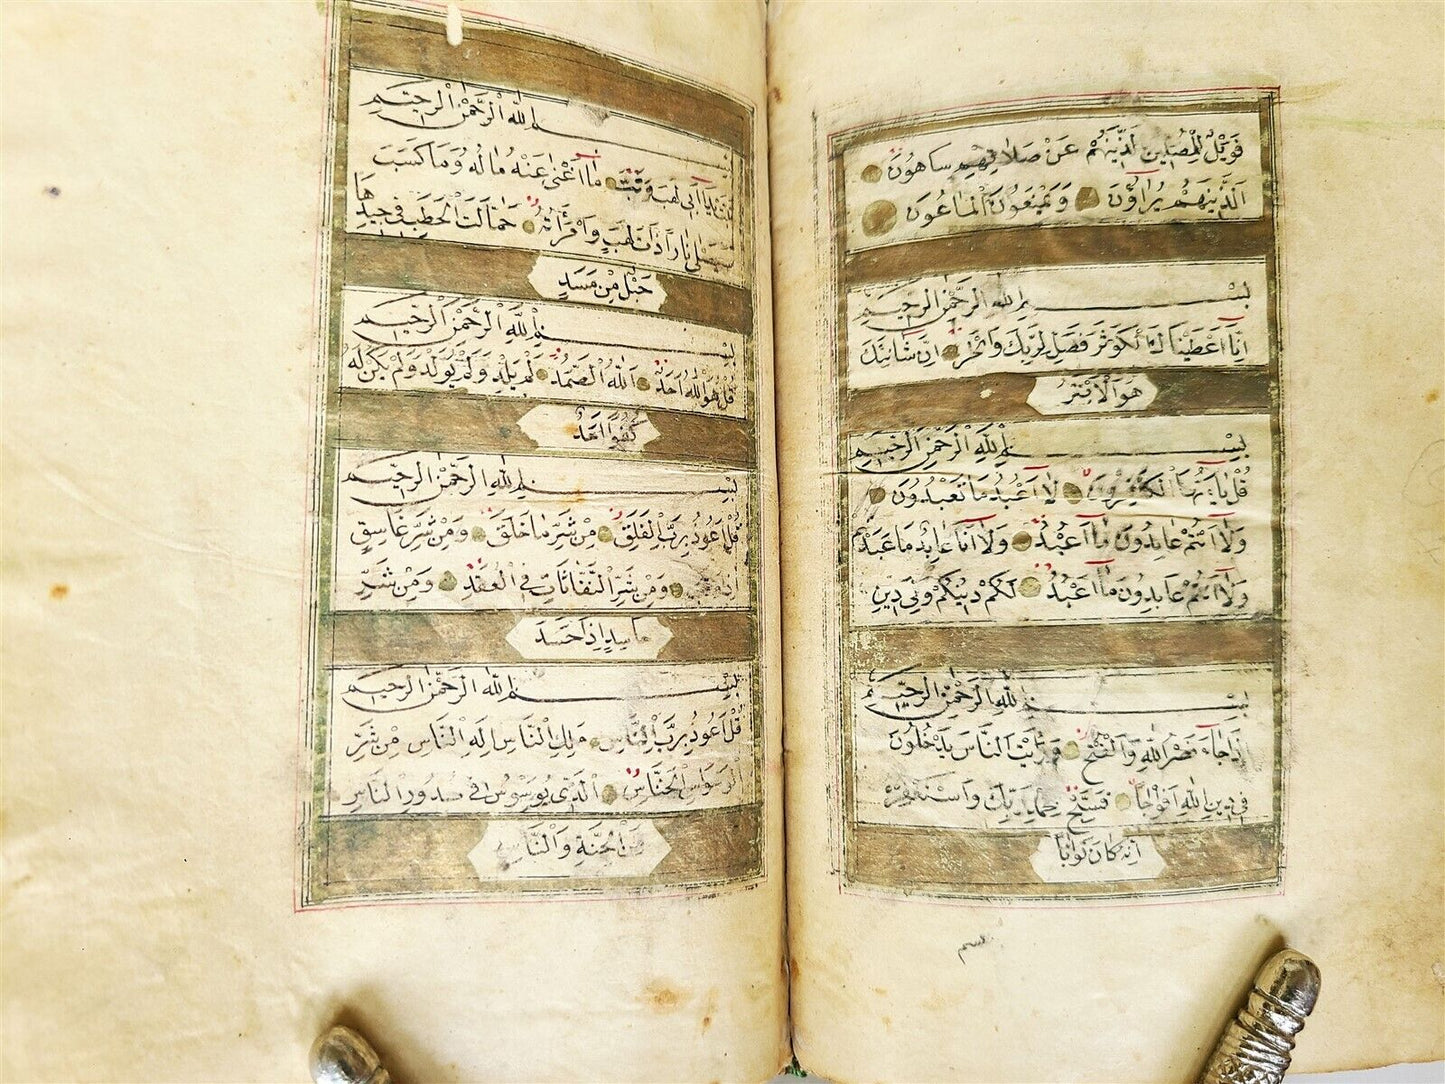 فَوَيْلٌ لِلْمُصَلِّينَ اَلَّذِينَهُمْ عَنْ صَلَاتِهِمْ سَاهُونَ
اَلَّذِينَهُمْ يُرَاؤُنَ وَيَمْنَعُونَ الْمَاعُونَ
بِسْمِ اللهِ الرَّحْمٰنِ الرَّحِيمِ
اِنَّا اَعْطَيْنَاكَ الْكَوْثَرَ فَصَلِّ لِرَبِّكَ وَانْحَرْ اِنَّ شَانِئَكَ
هُوَ الْاَبْتَرُ
بِسْمِ اللهِ الرَّحْمٰنِ الرَّحِيمِ
قُلْ يَا اَيُّهَا الْكَافِرُونَ لَا اَعْبُدُ مَا تَعْبُدُونَ
وَلَا اَنْتُمْ عَابِدُونَ مَا اَعْبُدُ وَلَا اَنَا عَابِدٌ مَا عَبَدْتُمْ
وَلَا اَنْتُمْ عَابِدُونَ مَا اَعْبُدُ لَكُمْ دِينُكُمْ وَلِيَ دِينِ
بِسْمِ اللهِ الرَّحْمٰنِ الرَّحِيمِ
اِذَا جَاءَ نَصْرُ اللهِ وَالْفَتْحُ وَرَاَيْتَ النَّاسَ يَدْخُلُونَ
فِي دِينِ اللهِ اَفْوَاجًا فَسَبِّحْ بِحَمْدِ رَبِّكَ وَاسْتَغْفِرْهُ
اِنَّهُ كَانَ تَوَّابًا
بِسْمِ اللهِ الرَّحْمٰنِ الرَّحِيمِ
تَبَّتْ يَدَا اَبِي لَهَبٍ وَتَبَّ مَا اَغْنٰى عَنْهُ مَالُهُ وَمَا كَسَبَ
سَيَصْلٰى نَارًا ذَاتَ لَهَبٍ وَامْرَاَتُهُ حَمَّالَةَ الْحَطَبِ فِي جِيدِهَا
حَبْلٌ مِنْ مَسَدٍ
بِسْمِ اللهِ الرَّحْمٰنِ الرَّحِيمِ
قُلْ هُوَ اللهُ اَحَدٌ اَللهُ الصَّمَدُ لَمْ يَلِدْ وَلَمْ يُولَدْ وَلَمْ يَكُنْ لَهُ
كُفُوًا اَحَدٌ
بِسْمِ اللهِ الرَّحْمٰنِ الرَّحِيمِ
قُلْ اَعُوذُ بِرَبِّ الْفَلَقِ مِنْ شَرِّ مَا خَلَقَ وَمِنْ شَرِّ غَاسِقٍ
اِذَا وَقَبَ وَمِنْ شَرِّ النَّفَّاثَاتِ فِي الْعُقَدِ وَمِنْ شَرِّ
حَاسِدٍ اِذَا حَسَدَ
بِسْمِ اللهِ الرَّحْمٰنِ الرَّحِيمِ
قُلْ اَعُوذُ بِرَبِّ النَّاسِ مَلِكِ النَّاسِ اِلٰهِ النَّاسِ مِنْ شَرِّ
الْوَسْوَاسِ الْخَنَّاسِ اَلَّذِي يُوَسْوِسُ فِي صُدُورِ النَّاسِ
مِنَ الْجِنَّةِ وَالنَّاسِ